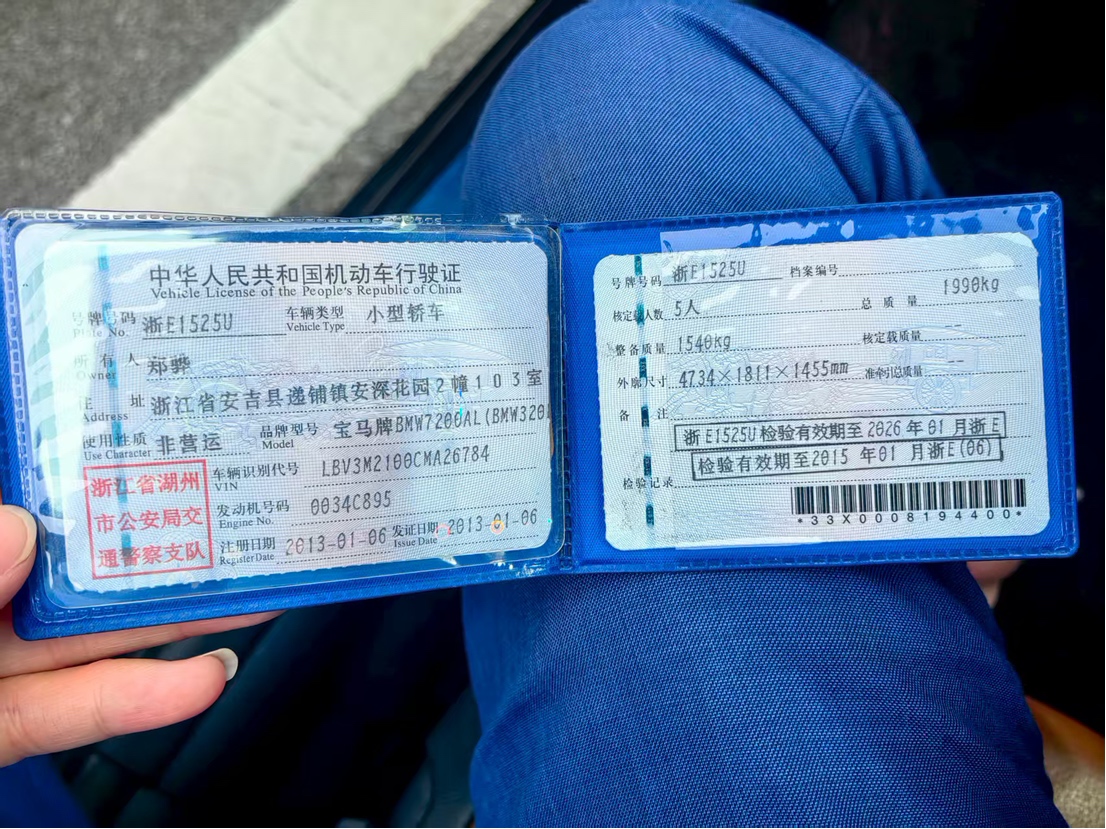 中华人民共和国机动车行驶证
Vehicle License of the People's Republic of China
号牌号码 浙E1525U 车辆类型 小型轿车
Plate No. Vehicle Type
所有人 郑骅
Owner
住址 浙江省安吉县递铺镇安深花园2幢103室
Address
使用性质 非营运 品牌型号 宝马牌BMW7200AL(BMW320
Use Character Model
浙江省湖州
市公安局交
通警察支队
车辆识别代号 LBV3M2100CMA26784
VIN
发动机号码 0034C895
Engine No.
注册日期 2013-01-06 发证日期 2013-01-06
Register Date Issue Date
号牌号码 浙E1525U 档案编号
核定载人数 5人 总质量 1990kg
整备质量 1540kg 核定载质量 --
外廓尺寸 4734×1811×1455mm 准牵引总质量 --
备注
浙E1525U检验有效期至2026年01月浙E
检验有效期至2015年01月浙E(06)
检验记录
*33X0008194400*